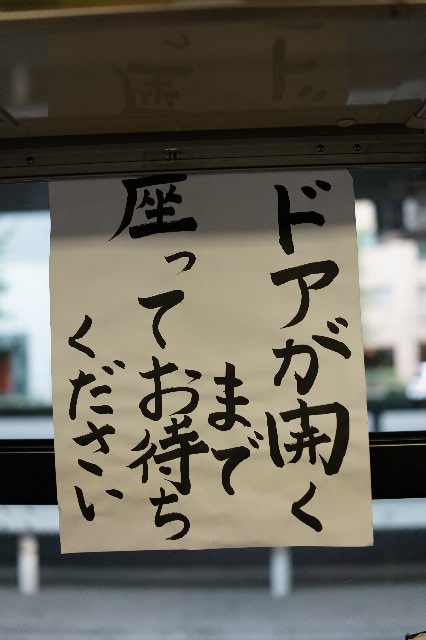 ドアが開く
まで
座ってお待ち
ください